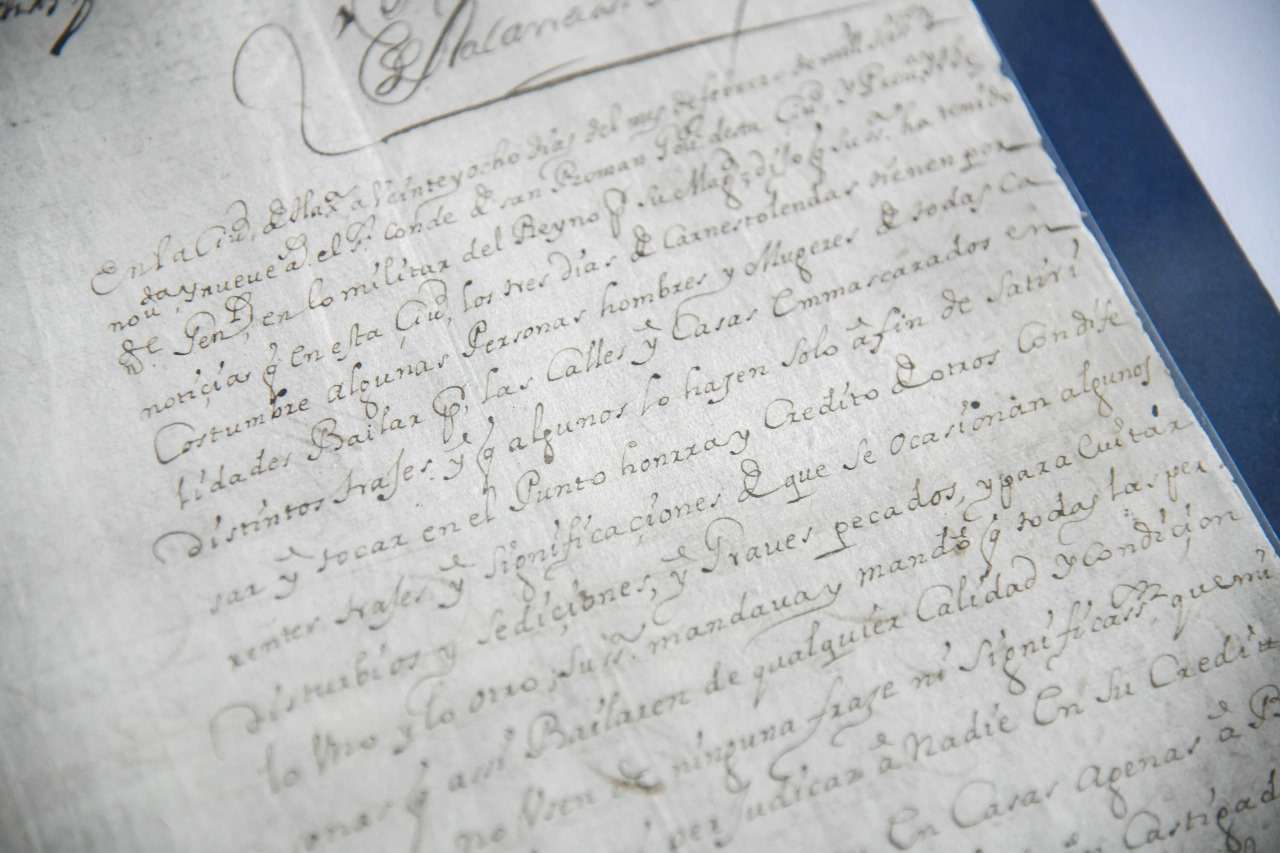 Salaman
En la Ciud. de Nax.a a Veinte y ocho dias del mes de febrero de mill
nouta. y nueue ad. el Sr. conde de san Roman
Gl. Gend. en lo militar del Reyno p. su Magd. dijo q su ha tenido
noticias q En esta Ciud. los tres dias de Carnestolendas tienen por
Costumbre algunas Personas hombres y Mugeres de todas Ca
lidades Bailar pr. las Calles y Casas Enmascarados en
distintos trajes. y q algunos lo hazen solo a fin de Satiri
sar y tocar en el Punto honrra y Credito de otros Con dife
rentes trajes y significaçiones de que se ocasionan algunos
disturbios y sediçiones, y Graues pecados, y para Euitar
lo Vno y lo otro, su mandaua y mando q todas las per
onas q assi Bailaren de qualquier Calidad y Condiçion
no Vsen de ninguna fraze ni significass. que ni
perjudicar a Nadie En su Credit
En Casas agenas a
Castigad